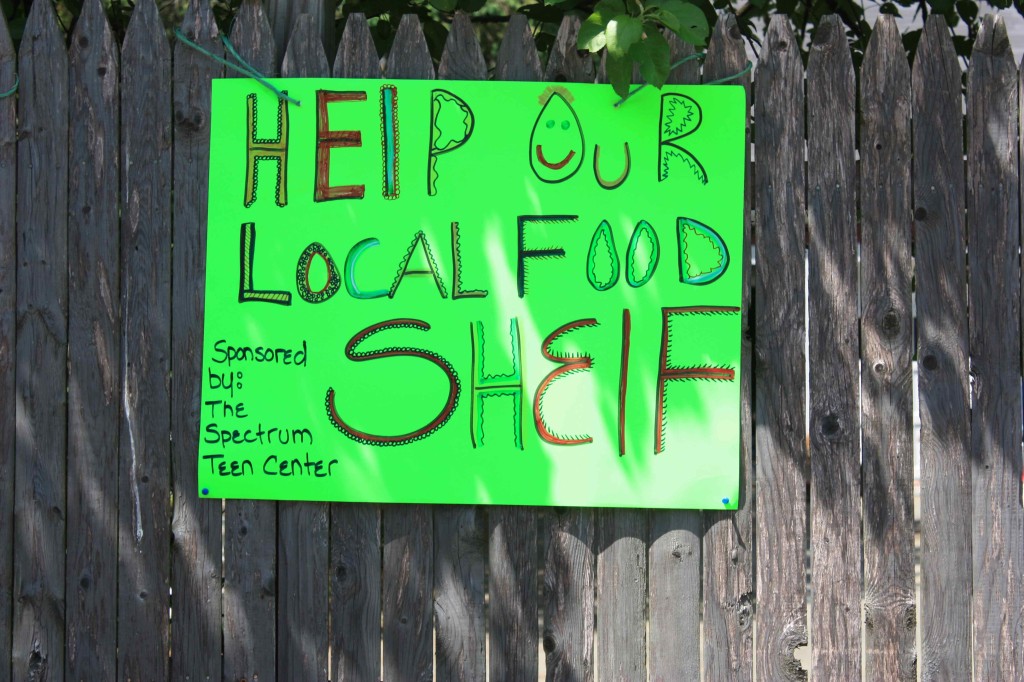 HElP OUR
LOCAL FOOD
SHElF
Sponsored
by:
The
Spectrum
Teen Center